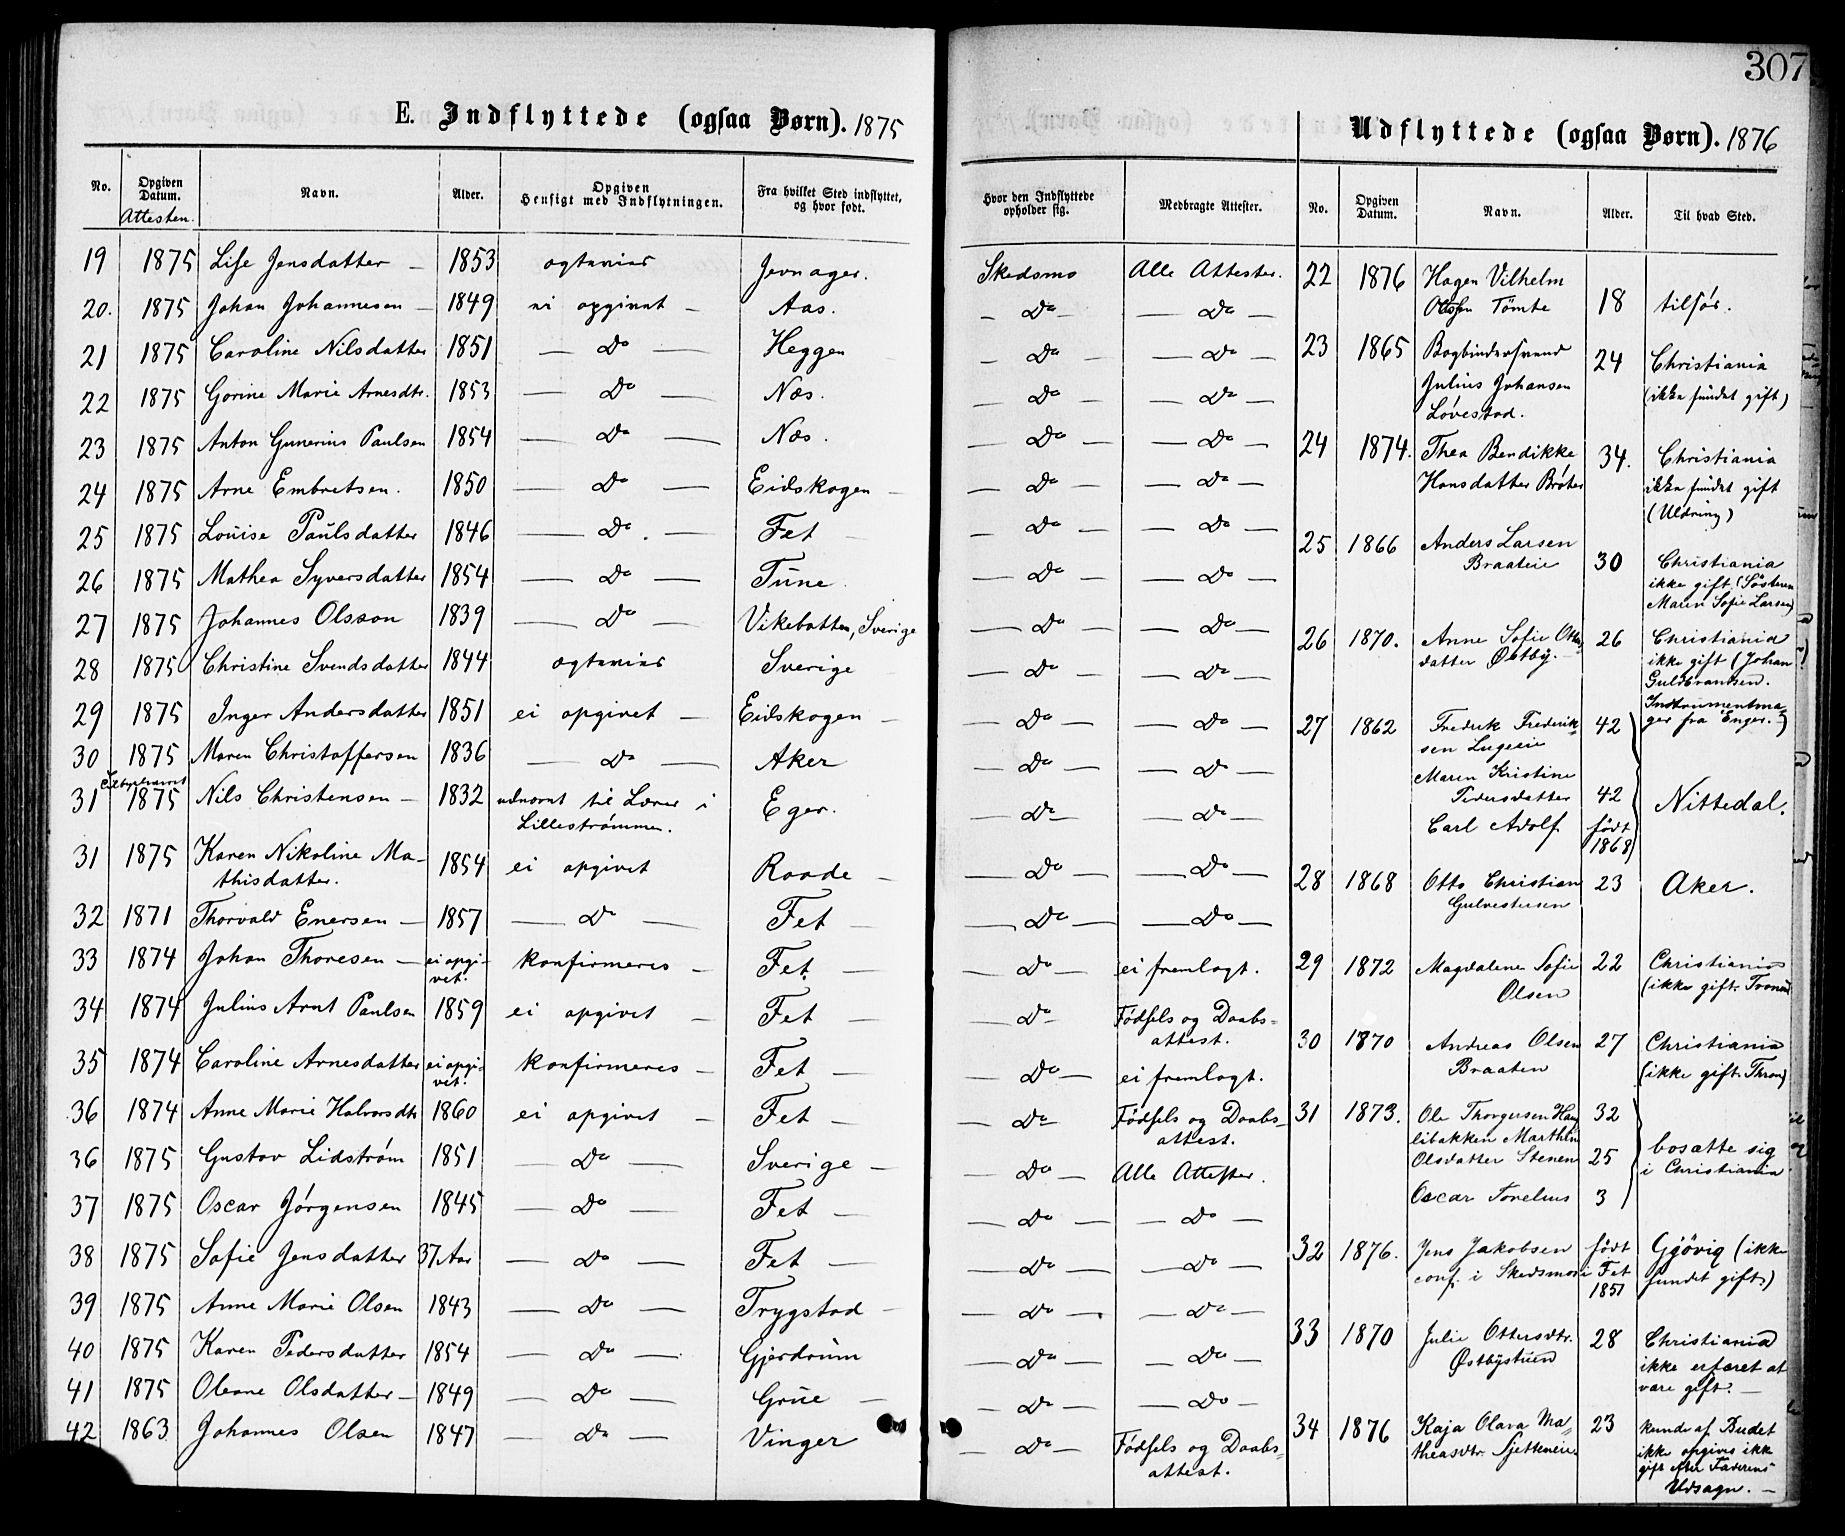 307
E. Indflyttede (ogsaa Børn). 1875
No. | Opgiven Datum. Attesten. | Navn. | Alder. | Opgiven Hensigt med Indflytningen. | Fra hvilket Sted indflyttet, og hvor født. | Hvor den Indflyttede opholder sig. | Medbragte Attester.
19 1875 Lise Jensdatter – 1853 ogtevies Jevnager. Skedsmo Alle Attester.
20. 1875 Johan Johannesen – 1849 ei opgivet – Aas. – Do – – Do –
21 1875 Caroline Nilsdatter 1851 – Do – Heggen – Do – – Do –
22 1875 Gorine Marie Arnesdtr. 1853 – Do – Nes. – Do – – Do –
23 1875 Anton Gunerius Paulsen 1854 – Do – Nes. – Do – – Do –
24 1875 Arne Embretsen. 1850 – Do – Eidskogen – – Do – – Do –
25 1875 Louise Paulsdatter 1846 – Do. – Fet – – Do – – Do –
26 1875 Mathea Syversdatter 1854 – Do – Tune. – Do – – Do –
27 1875 Johannes Olsson 1839 – Do – Vikebotten, Sverige – Do – – Do –
28 1875 Christine Svendsdatter 1844 ogtevies Sverige – Do – – Do –
29 1875 Inger Andersdatter 1851 ei opgivet – Eidskogen – – Do – – Do –
30 1875 Maren Christoffersen 1836 – Do – Aker – Do – – Do –
31 1875 Nils Christensen – 1832 udnevnt til Lærer i Eger. – Do – – Do –
Lillestrømmen.
31 1875 Karen Nikoline Ma- 1854 ei opgivet Raade – – Do – – Do –
thisdatter.
32 1871 Thorvald Enersen – 1857 – Do – Fet – – Do – – Do –
33 1874 Johan Thoresen – ei opgi- konfirmeres – Fet – – Do – ei fremlagt.
vet.
34 1874 Julius Arnt Paulsen 1859 ei opgivet – Fet – – Do – Fødsels og Daabs-
attest.
35 1874 Caroline Arnesdatter ei opgi- konfirmeres – Fet – – Do – ei fremlagt.
vet.
36 1874 Anne Marie Halvorsdtr 1860 ei opgivet – Fet – – Do – Fødsels og Daabs-
attest.
36 1875 Gustav Lidstrøm 1851 – Do – Sverige – – Do – Alle Attester.
37 1875 Oscar Jørgensen 1845 – Do – Fet – – Do – – Do –
38 1875 Sofie Jensdatter 37 Aar – Do – Fet – – Do – – Do –
39 1875 Anne Marie Olsen 1843 – Do – Trygstad – – Do – – Do –
40 1875 Karen Pedersdatter 1854 – Do – Gjerdrum – Do – – Do –
41 1875 Oleane Olsdatter – 1849 – Do – Grue – – Do – – Do –
42 1863 Johannes Olsen 1847 – Do – Vinger – Do – Fødsels og Daabs-
attest.
Udflyttede (ogsaa Børn). 1876
No. | Opgiven Datum. | Navn. | Alder. | Til hvad Sted.
22 1876 Hagen Vilhelm
Olsen Tömte 18 tilsøs.
23 1865 Bogbindersvend 24 Christiania
Julius Johansen (ikke fundet gift)
Løvestad.
24 1874. Thea Bendikke 34. Christiania
Hansdatter Bråten ikke fundet gift
(Uldriny)
25 1866 Anders Larsen
Braateie 30 Christiania
ikke gift (Søsteren
Maren Sofie Larsen)
26 1870. Anne Sofie Otters 26 Christiania
datter Østby. ikke gift (Johan
Guldbrandsen.
Instrumentma-
ger fra Enger.)
27 1862 Fredrik Frederik- 42
sen
Maren Kristine
Pedersdatter 42 Nittedal.
Carl Adolf født
1868
28 1868 Otto Christian 23 Aker.
29 1872 Magdalene Sofie 22 Christiania
Olsen (ikke gift.
30 1870 Andreas Olsen 27 Christiania
Braaten (ikke gift.
31 1873. Ole Thorgersen 32
libakken Marthe
Olsdatter Stenen 25 bosætte sig
i Christiania
Oscar 3
32 1876. Jens Jakobsen født Gjövig (ikke
conf. i Skedsmo i Fet fundet gift)
1851
33 1870 Julie Ottersdtr. 28 Christiania
Østbystuen ikke erfaret at
være gift. –
34 1876 Kaja Olava Ma- 23 kunde af Budet
theasdtr. ikke opgives ikke
gift efter Faderens
Udsagn. –